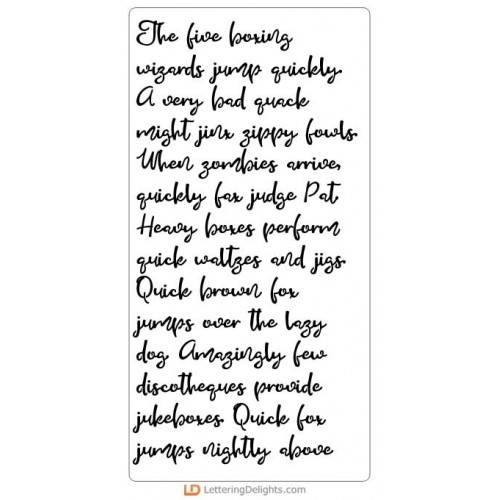 The five boxing
wizards jump quickly.
A very bad quack
might jinx zippy fowls.
When zombies arrive,
quickly fax judge Pat.
Heavy boxes perform
quick waltzes and jigs.
Quick brown fox
jumps over the lazy
dog. Amazingly few
discotheques provide
jukeboxes. Quick fox
jumps nightly above
LD LetteringDelights.com